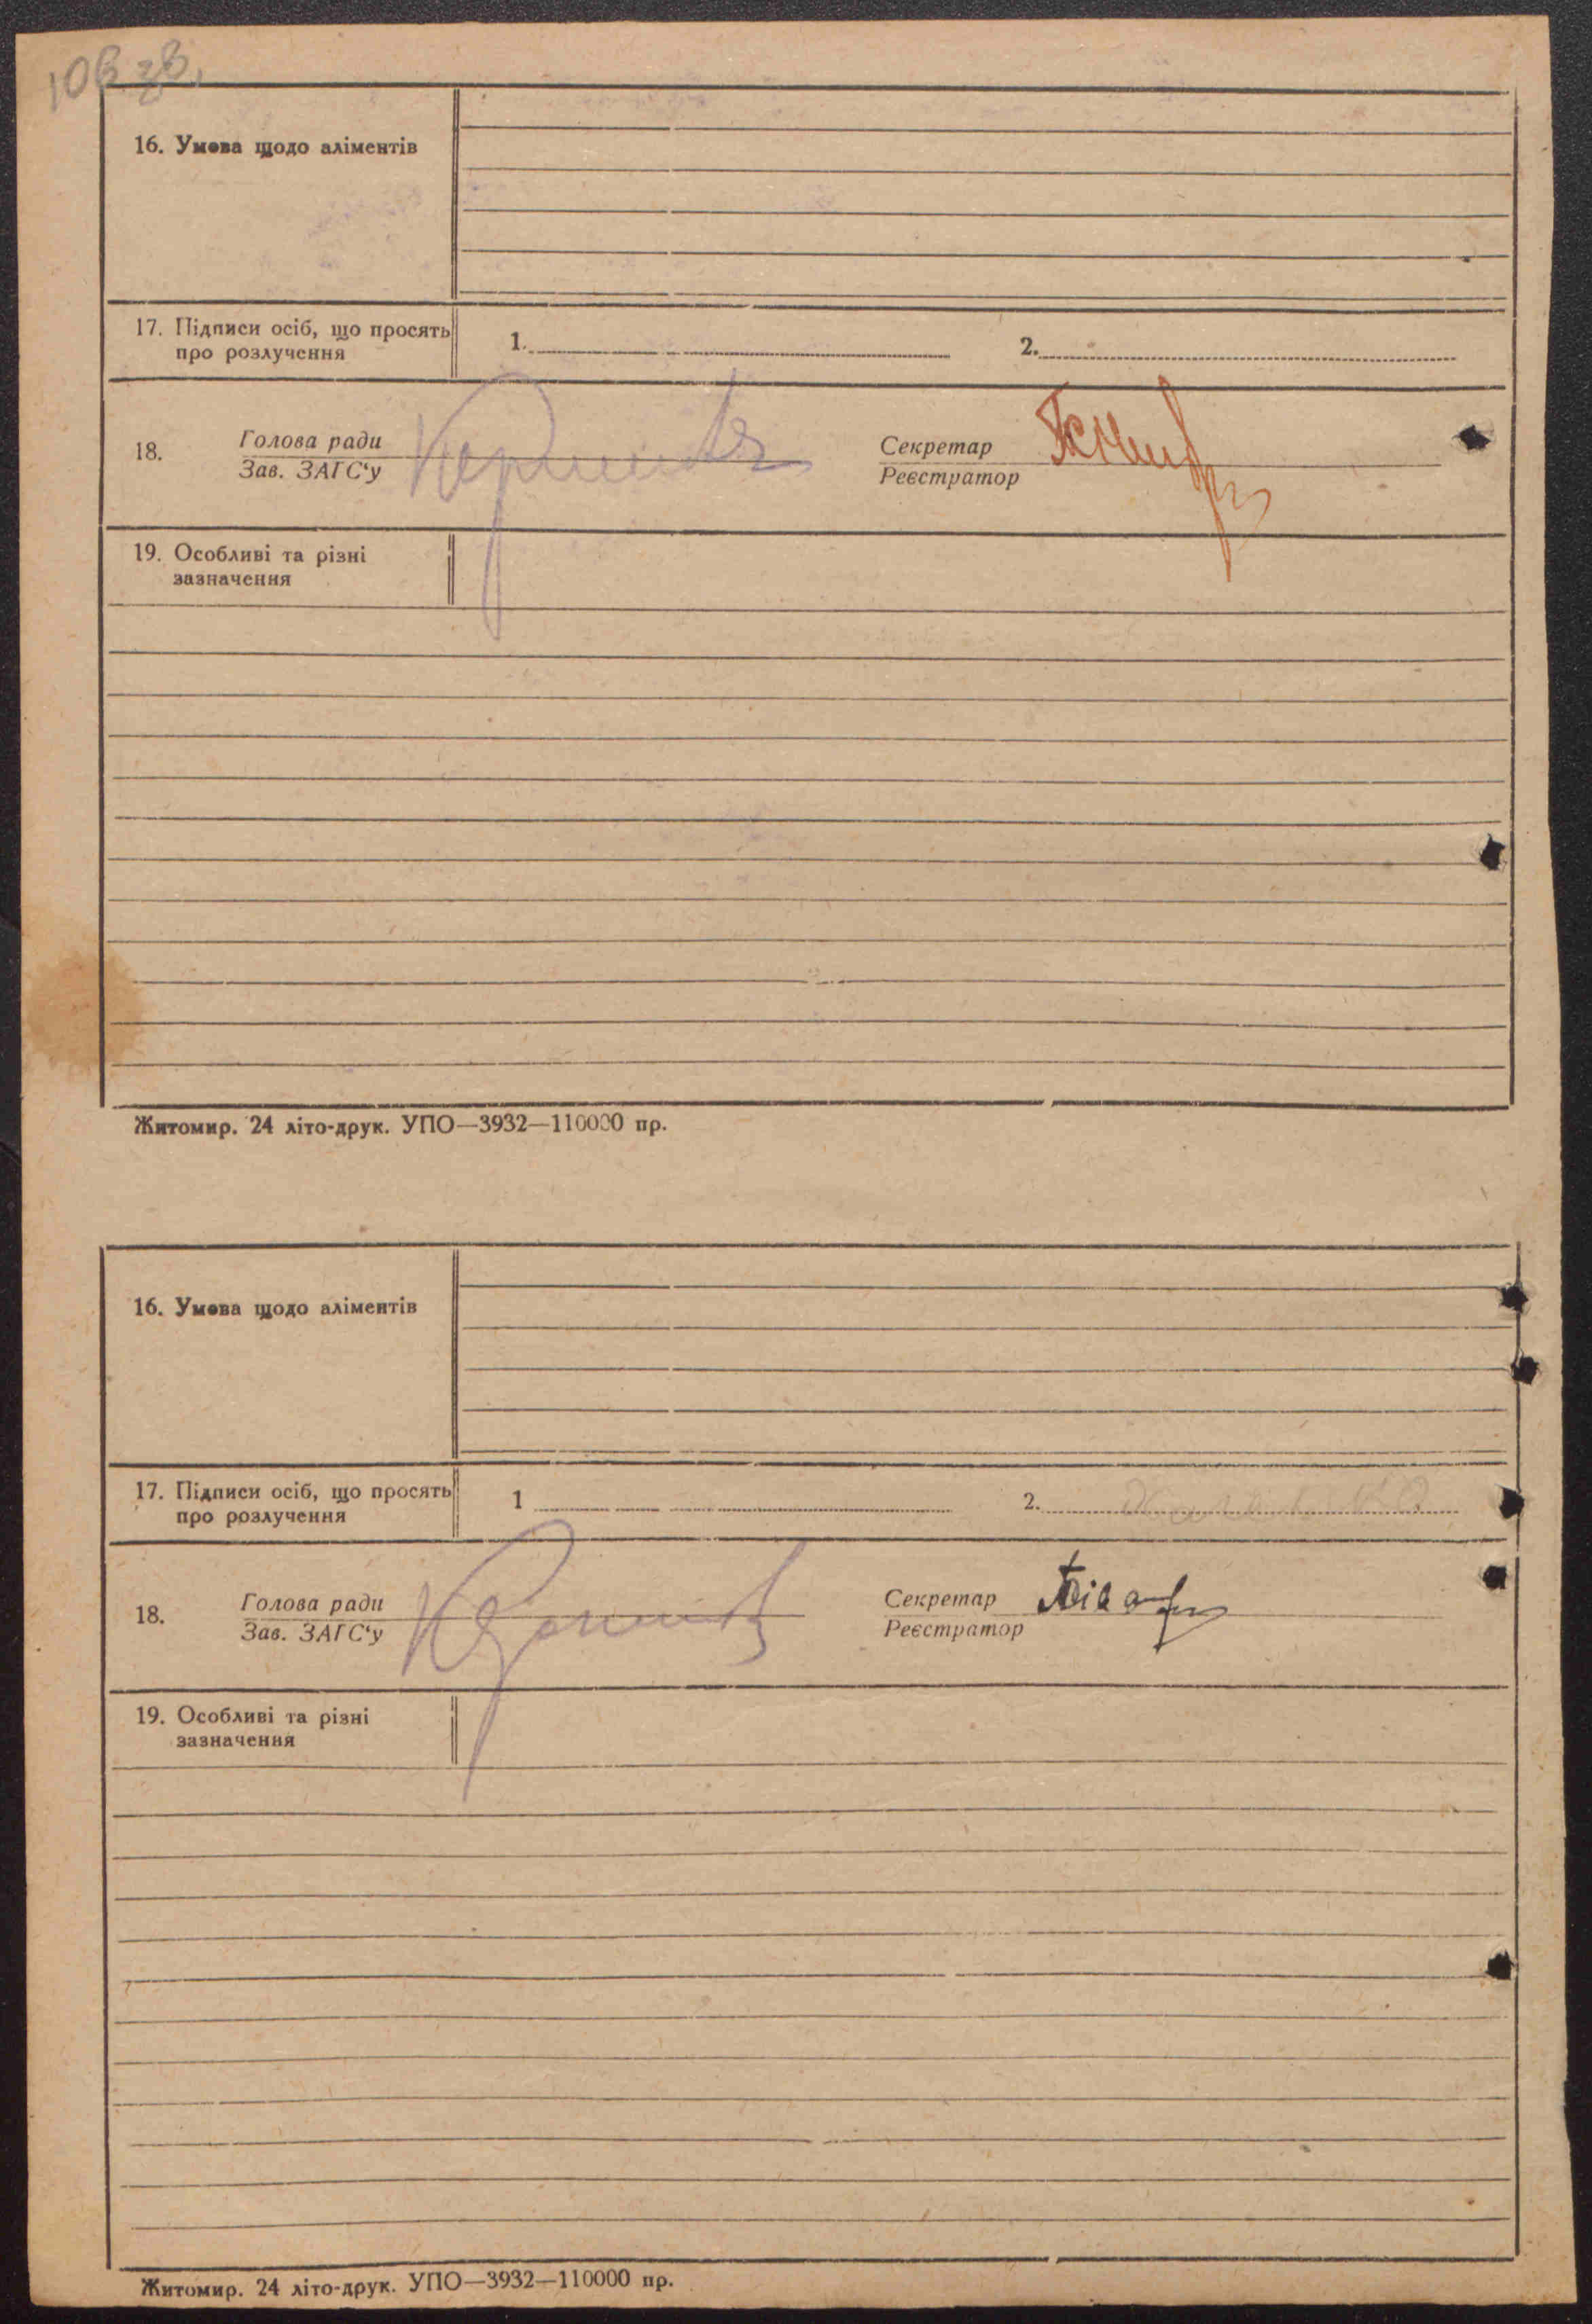 10в зв.
16. Умова щодо аліментів
17. Підписи осіб, що просять
про розлучення
1.
2.
18.
Голова ради
Зав. ЗАГС‘у
Секретар
Реєстратор
19. Особливі та різні
зазначення
Житомир. 24 літо-друк. УПО—3932—110000 пр.
16. Умова щодо аліментів
17. Підписи осіб, що просять
про розлучення
1
2.
18.
Голова ради
Зав. ЗАГС‘у
Секретар
Реєстратор
19. Особливі та різні
зазначення
Житомир. 24 літо-друк. УПО—3932—110000 пр.